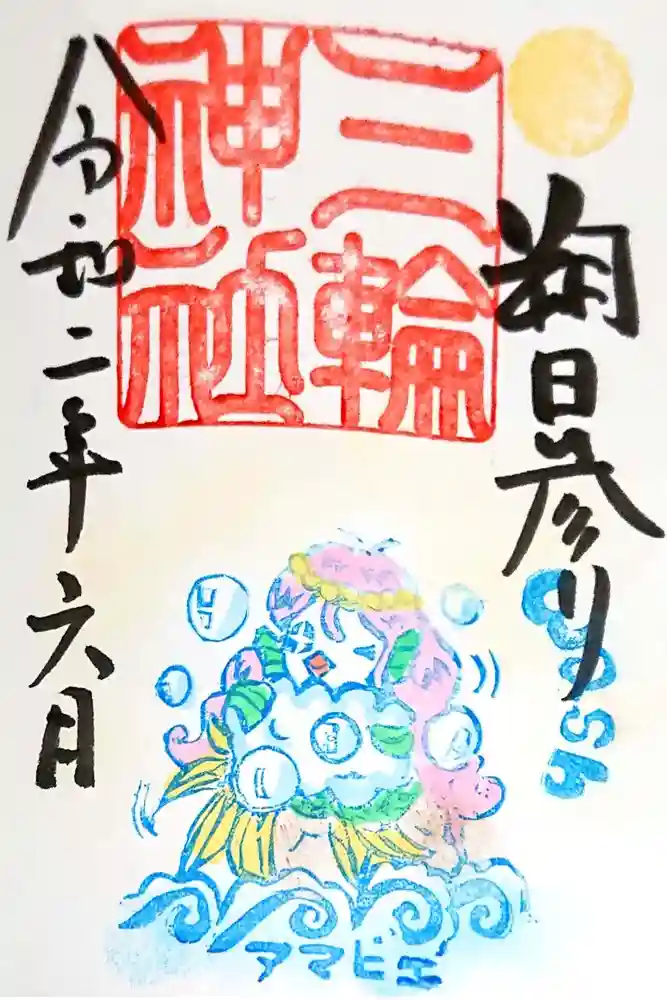 朔日参り
三輪
神社
令和二年六月
wash
アマビエ